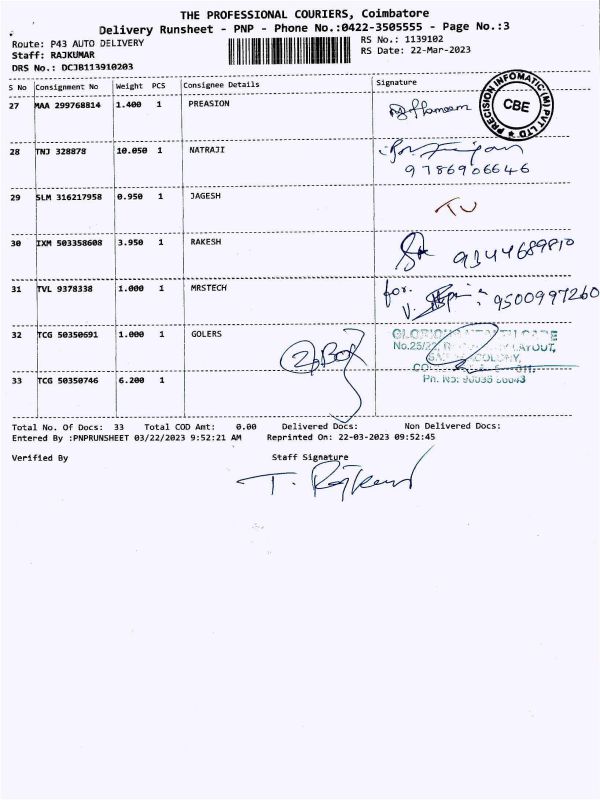 THE PROFESSIONAL COURIERS, Coimbatore
Delivery Runsheet - PNP - Phone No.:0422-3505555 - Page No.:3
Route: P43 AUTO DELIVERY RS No.: 1139102
Staff: RAJKUMAR RS Date: 22-Mar-2023
DRS No.: DCJB113910203
S No Consignment No Weight PCS Consignee Details Signature
27 MAA 299768814 1.400 1 PREASION
PRECISION INFOMATIC (M) PVT LTD CBE
28 TNJ 328878 10.050 1 NATRAJI
9786906646
29 SLM 316217958 0.950 1 JAGESH
30 IXM 503358608 3.950 1 RAKESH 9344689810
31 TVL 9378338 1.000 1 MRSTECH for. V. 9500997260
32 TCG 50350691 1.000 1 GOLERS
2 Box
No.25/22, LAYOUT,
COLONY,
33 TCG 50350746 6.200 1
Ph. No:
Total No. Of Docs: 33 Total COD Amt: 0.00 Delivered Docs: Non Delivered Docs:
Entered By :PNPRUNSHEET 03/22/2023 9:52:21 AM Reprinted On: 22-03-2023 09:52:45
Verified By Staff Signature